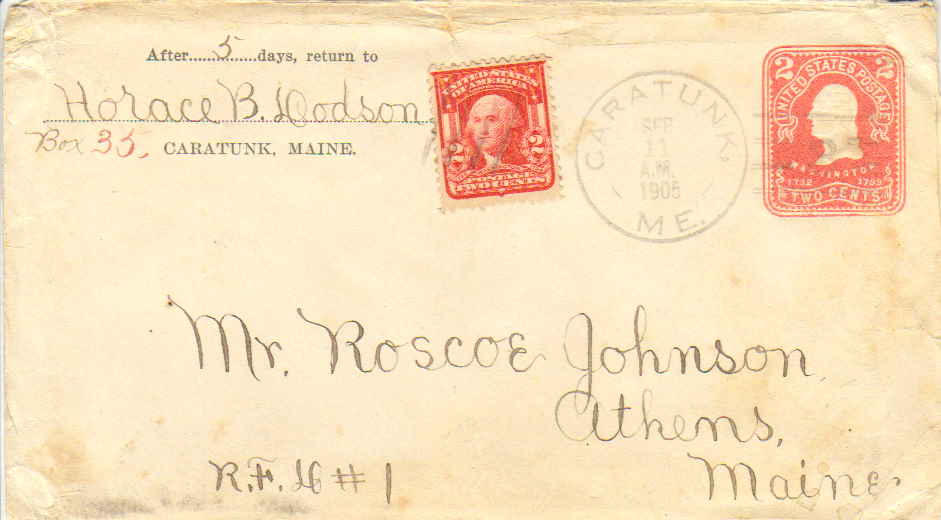 After......5......days, return to
Horace B. Hodson
Box 35, CARATUNK, MAINE.
UNITED STATES
OF AMERICA
2 2
POSTAGE
TWO CENTS
CARATUNK,
SEP
11
A.M.
ME.
2 2
UNITED STATES POSTAGE
WASHINGTON
1732 1799
TWO CENTS
Mr. Roscoe Johnson,
Athens,
Maine.
R.F. # 1